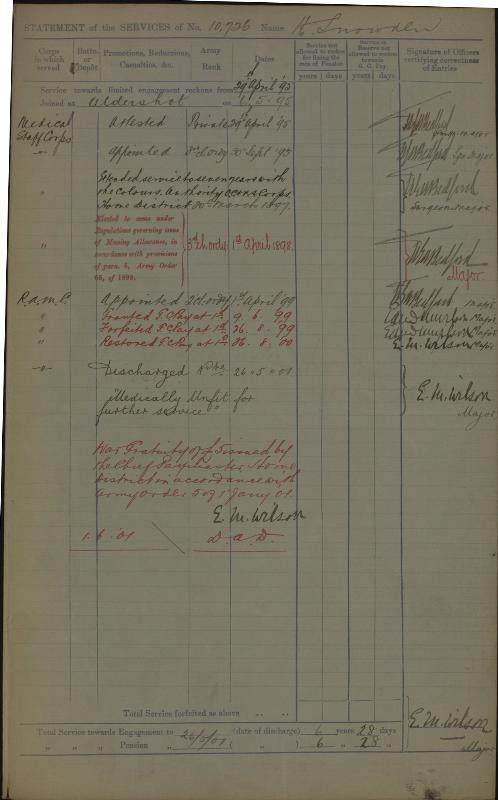 STATEMENT of the SERVICES of No. 10,726 Name H. Snowden
Corps in which served
Battn. or Depôt
Promotions, Reductions, Casualties, &c.
Army Rank
Dates
Service not allowed to reckon for fixing the rate of Pension
Service in Reserve not allowed to reckon towards G. C. Pay
Signature of Officers certifying correctness of Entries
years days years days
Service towards limited engagement reckons from 29 April '95
Joined at Aldershot on 1.5.95
Medical Staff Corps Attested Private 29 April 95
" Appointed 3rd Cl Ordy 30 Sept 95
" Extended service to seven years with
the colours. Authority
Home District 30 March 1897.
" Elected to come under
Regulations governing issue
of Messing Allowance, in
accordance with provisions
of para. 5, Army Order
65, of 1898.
3rd Cl. Ordy. 1st April 1898.
Major.
R.A.M.C. Appointed 2 Cl Ordy 1st April 99 Major
" Granted S.C. Pay at 1d. 9. 6. 99
" Forfeited S.C. Pay at 1d. 26. 8. 99
" Restored S.C. Pay at 1d. 26. 8. 00 E. M. Wilson Major
" Discharged 26 " 5 " 01
"Medically Unfit for
further service" E. M. Wilson
Major
War Gratuity of £5 issued by
the Chief Paymaster, Home
District in accordance with
Army Order 5 of 1 Jany 01.
E. M. Wilson
1. 6. 01 D. A. D.
Total Service forfeited as above
E. M. Wilson
Major
Total Service towards Engagement to 26/5/01 (date of discharge) 6 years 28 days
" " " Pension " ( " ) 6 " 28 "